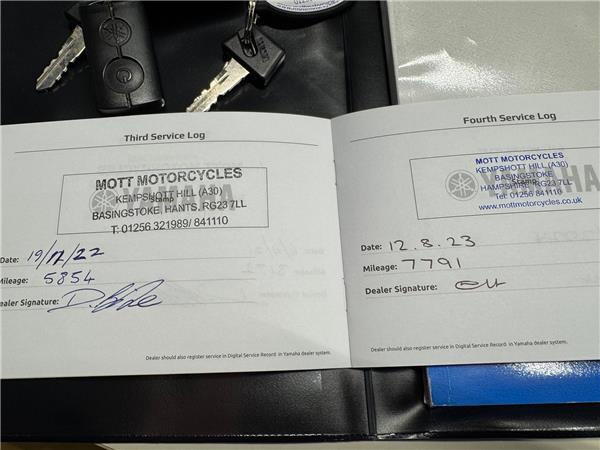 Third Service Log
MOTT MOTORCYCLES
KEMPSHOTT HILL (A30)
Stamp
BASINGSTOKE, HANTS. RG23 7LL
T: 01256 321989/ 841110
YAMAHA
Date: 19/12/22
Mileage: 5854
Dealer Signature:
Dealer should also register service in Digital Service Record in Yamaha dealer system.
Fourth Service Log
MOTT MOTORCYCLES
KEMPSHOTT HILL (A30)
BASINGSTOKE
Stamp
HAMPSHIRE RG23 7LL
Tel: 01256 841110
www.mottmotorcycles.co.uk
YAMAHA
Date: 12.8.23
Mileage: 7791
Dealer Signature:
Dealer should also register service in Digital Service Record in Yamaha dealer system.